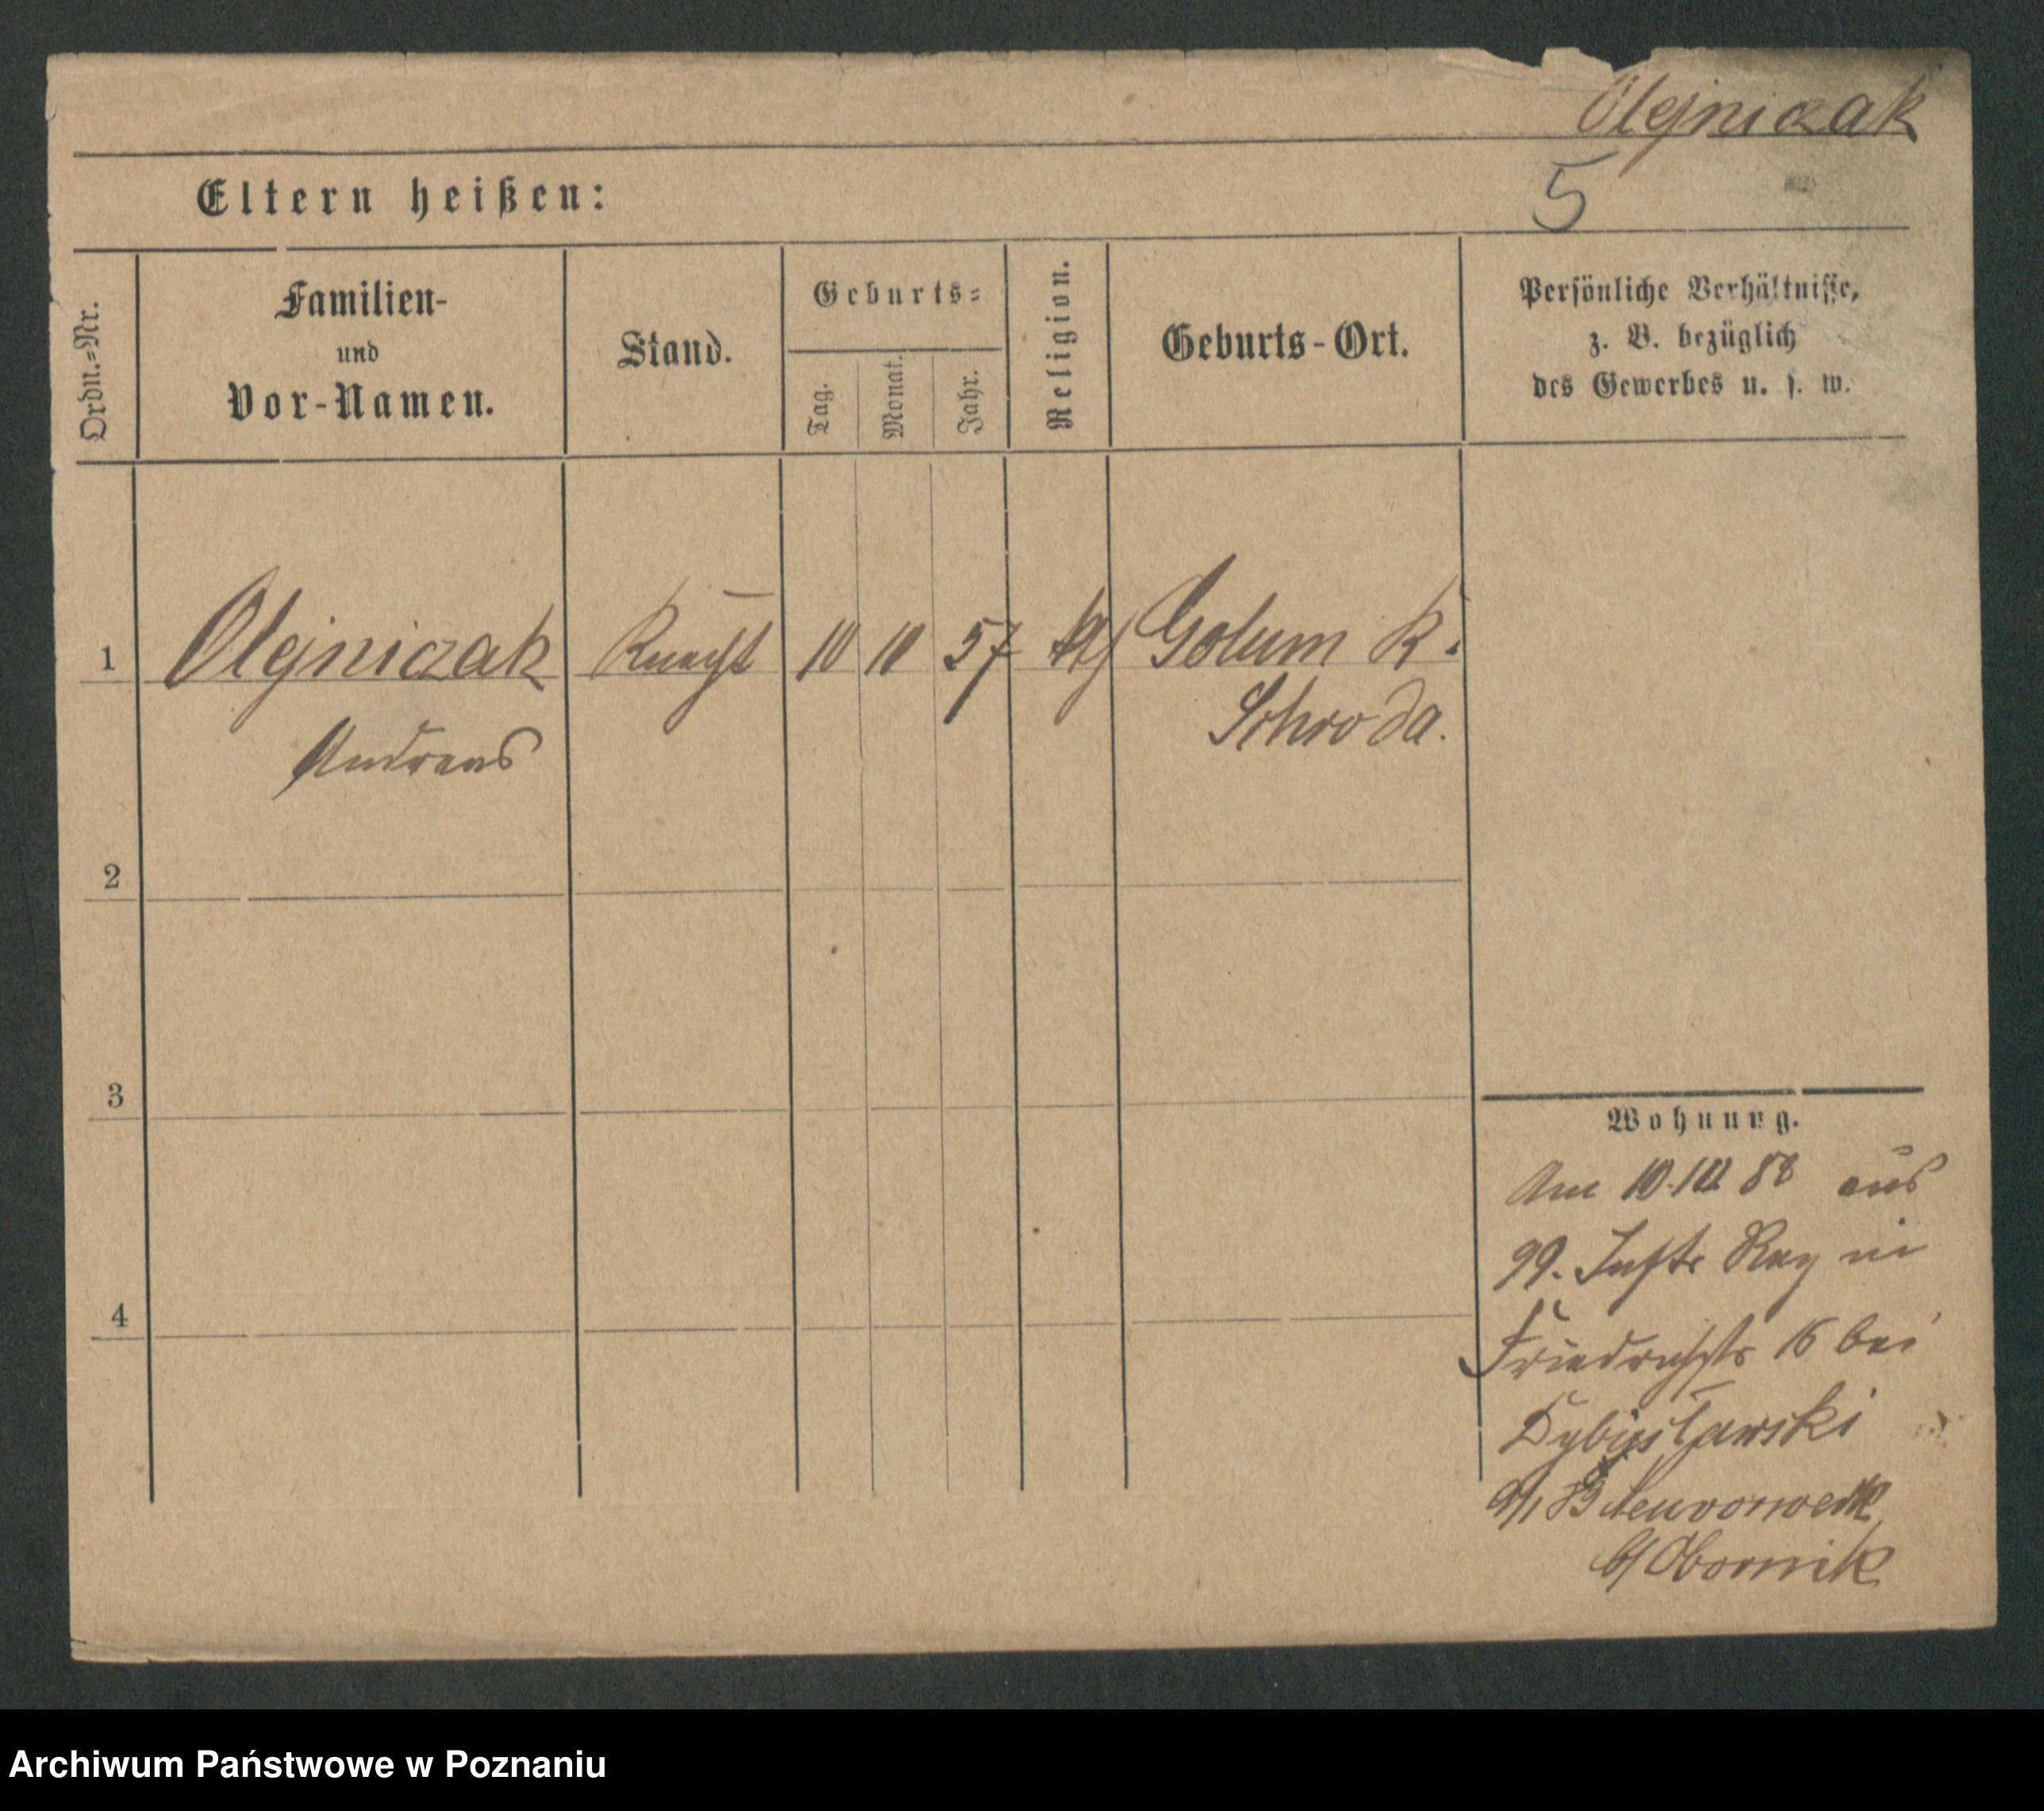 Olejniczak
Eltern heißen:
5
Ordn.=Nr.
Familien-
und
Vor-Namen.
Stand.
Geburts=
Tag.
Monat.
Jahr.
Religion.
Geburts-Ort.
Persönliche Verhältnisse,
z. B. bezüglich
des Gewerbes u. s. w.
1 Olejniczak Knecht 10 10 57 Golum K.
Andreas Schroda.
2
3
4
Wohnung.
Am 10. 88 aus
99. Inftr Reg in
Friedrichstr 16 bei
Neuvorwerk
b/ Obornik
Archiwum Państwowe w Poznaniu